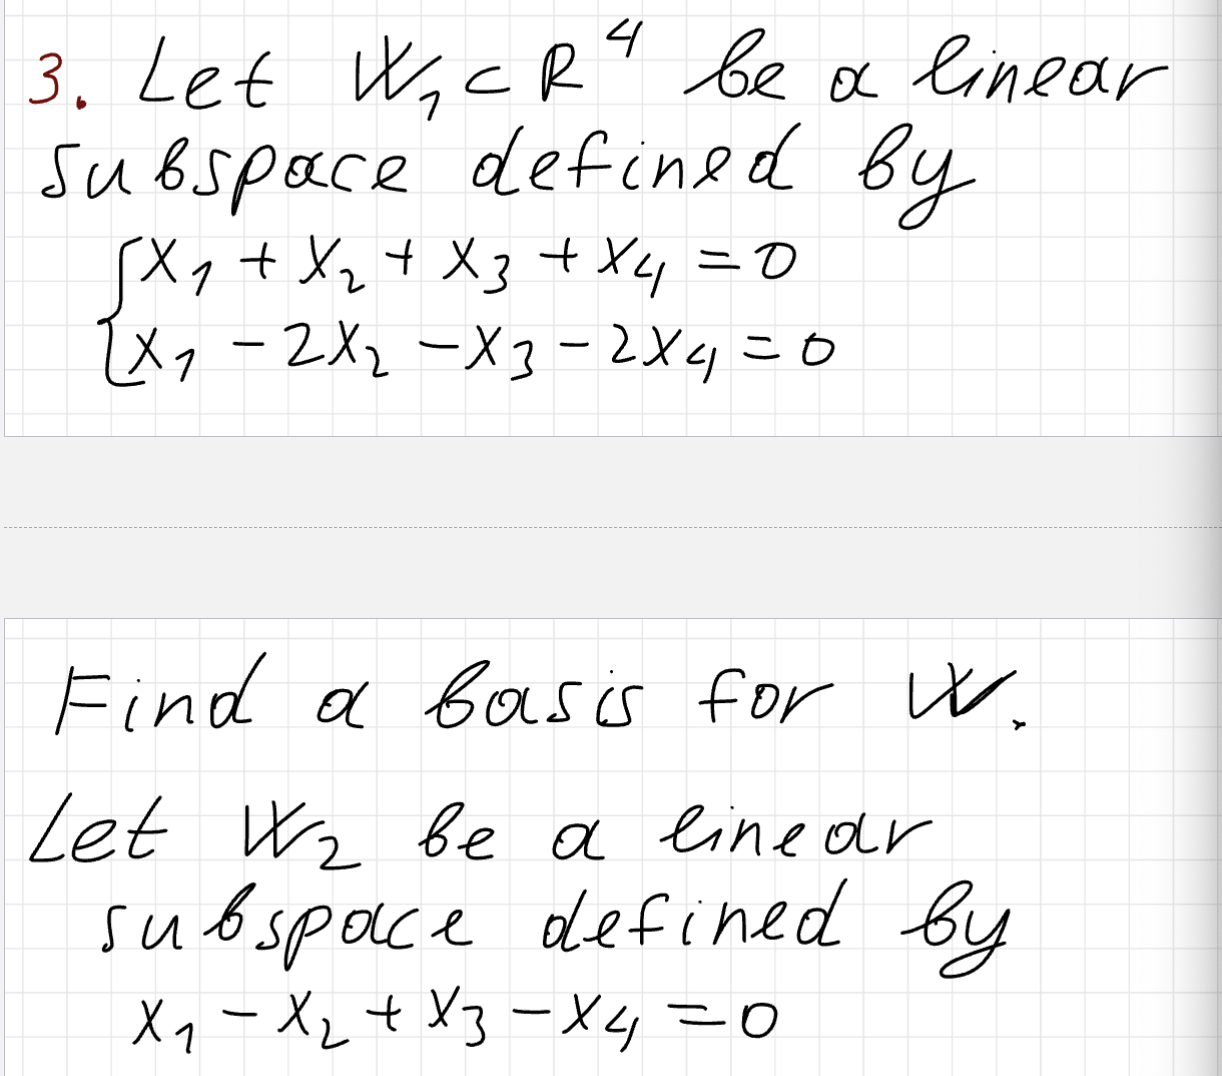 3. Let W₁ ⊂ R⁴ be a linear
subspace defined by
{ x₁ + x₂ + x₃ + x₄ = 0
x₁ - 2x₂ - x₃ - 2x₄ = 0
Find a basis for W.
Let W₂ be a linear
subspace defined by
x₁ - x₂ + x₃ - x₄ = 0